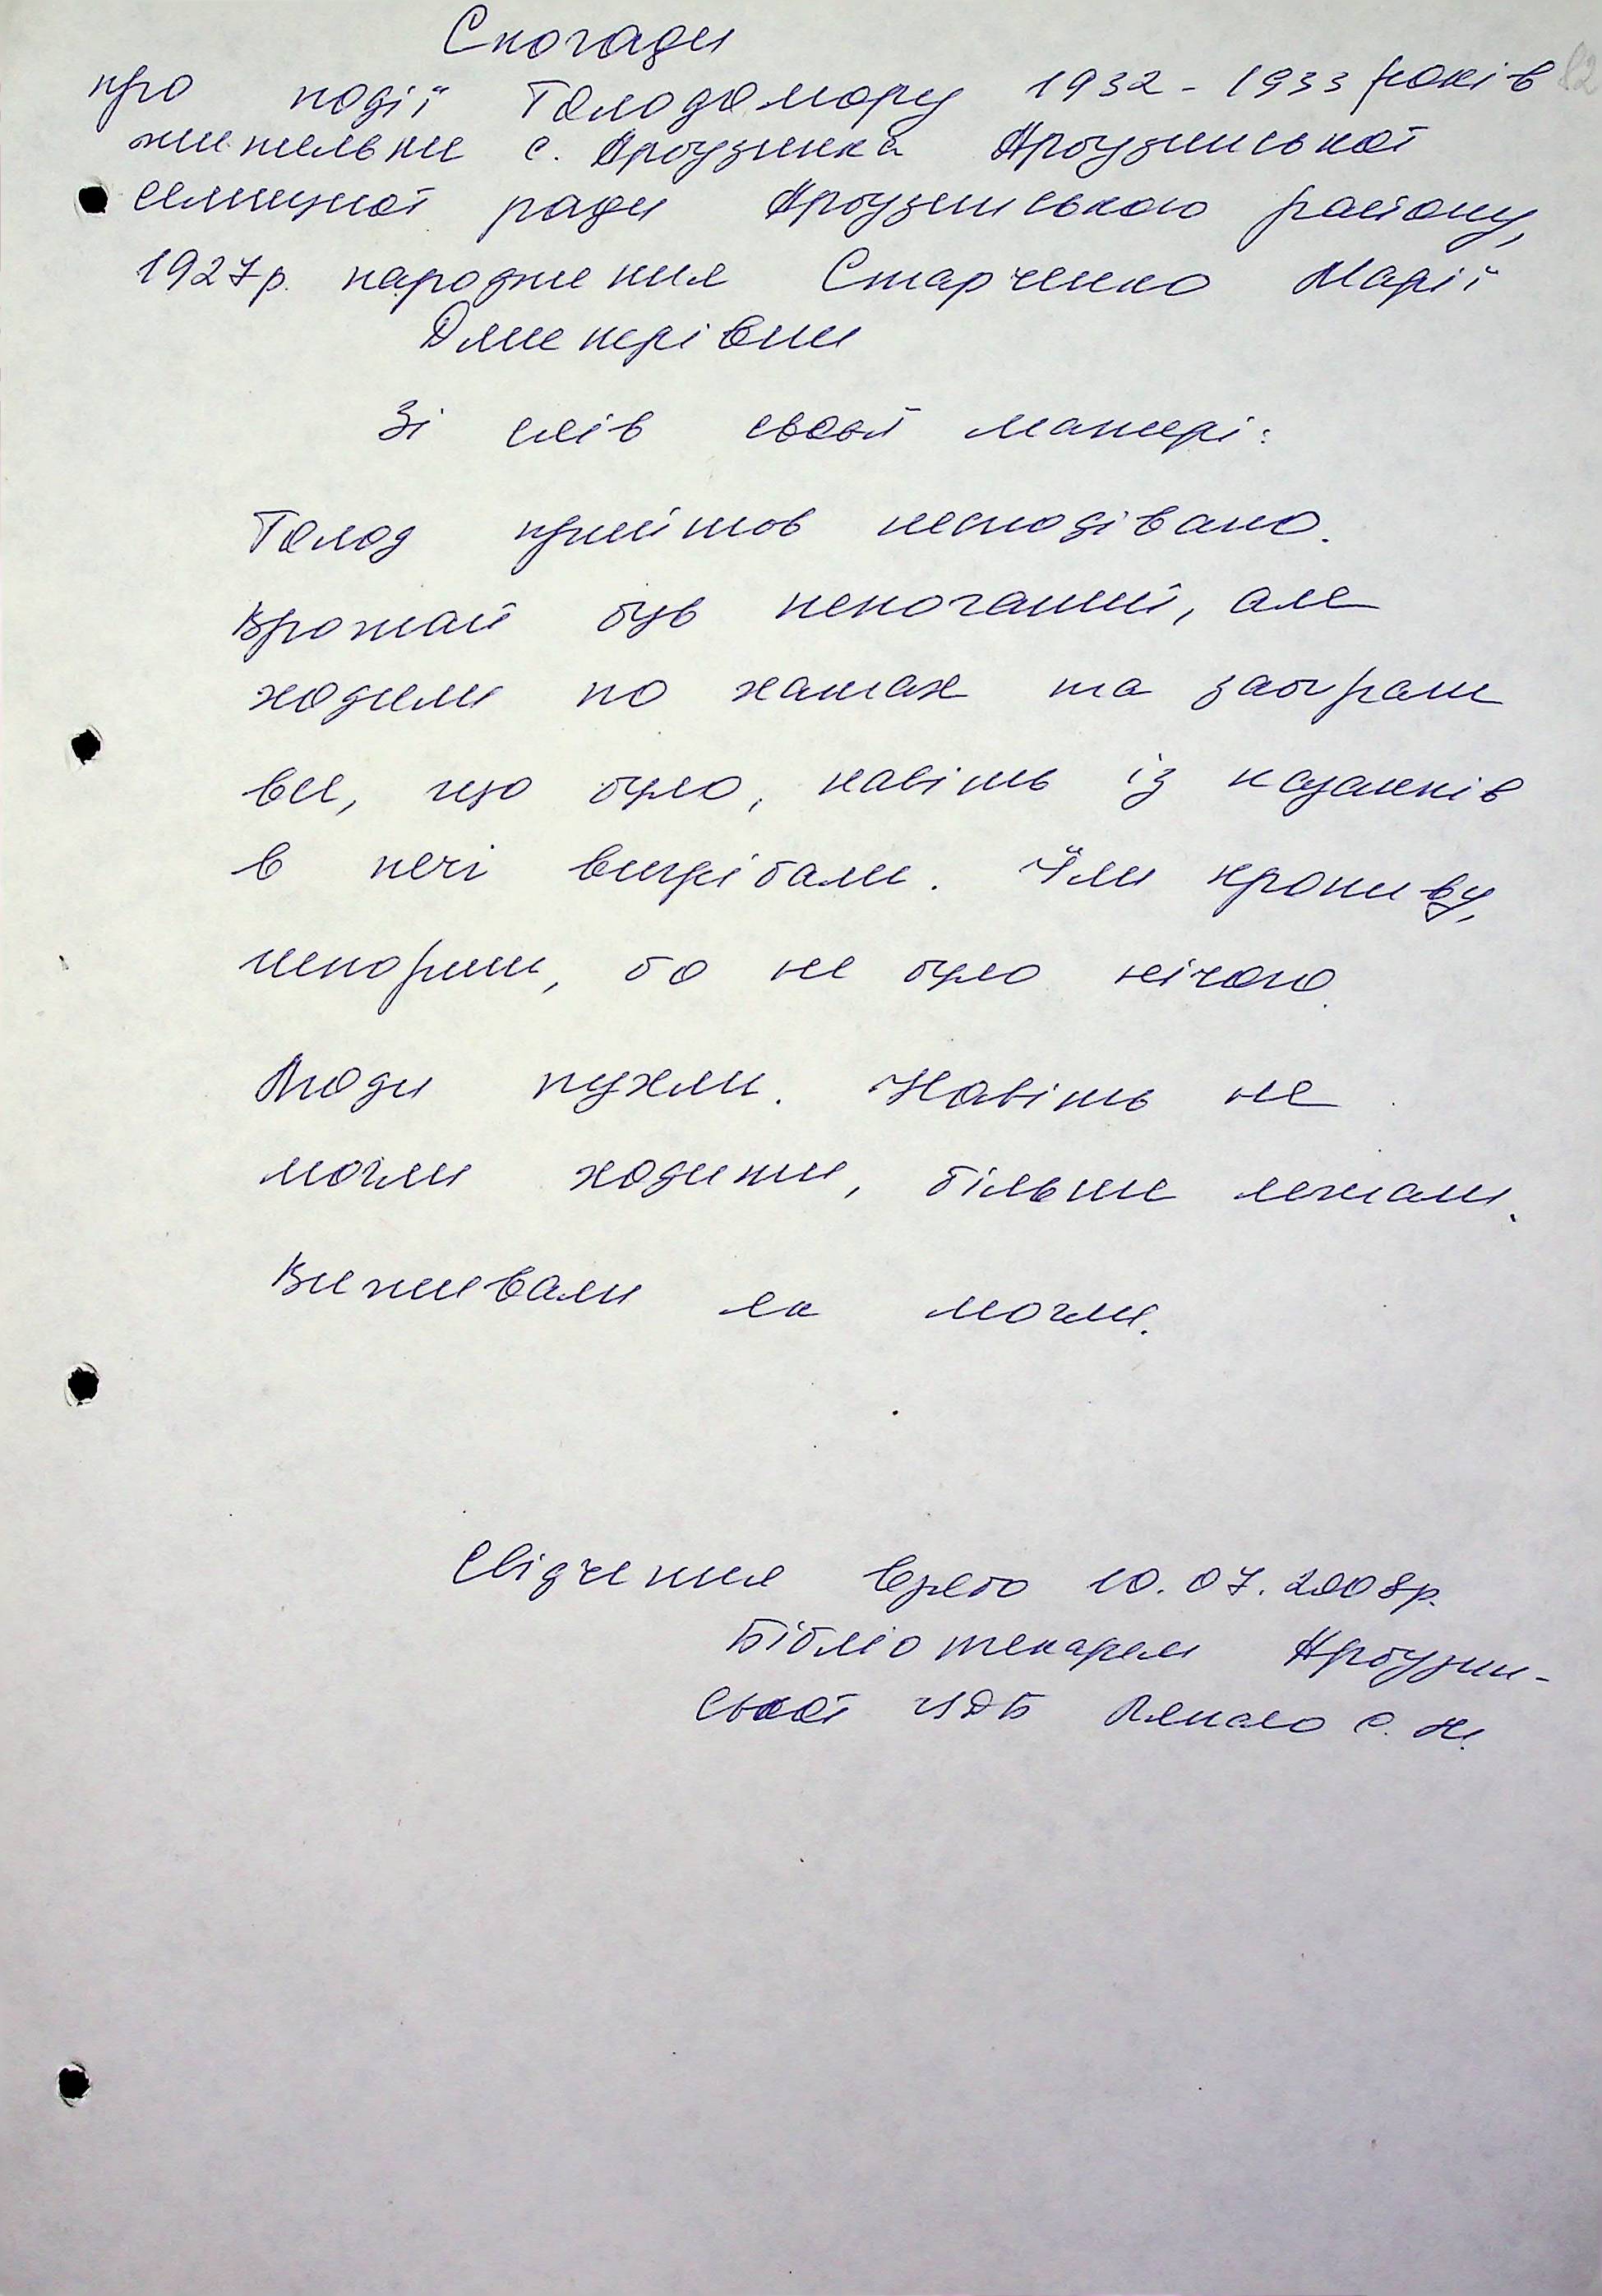 Спогади
про події Голодомору 1932 - 1933 років
жительки с. Арбузинка Арбузинської
селищної ради Арбузинського району,
1927р. народження Старченко Марії
Дмитрівни
Зі слів своєї матері:
Голод прийшов несподівано.
Врожай був непоганий, але
ходили по хатах та забирали
все, що було, навіть із казанків
в печі вигрібали. Їли кропиву,
спориш, бо не було нічого.
Люди пухли. Навіть не
могли ходити, більше лежали.
Виживали як могли.
Свідчення взято 10.07.2008р.
Бібліотекарем Арбузин-
ської ЦДБ